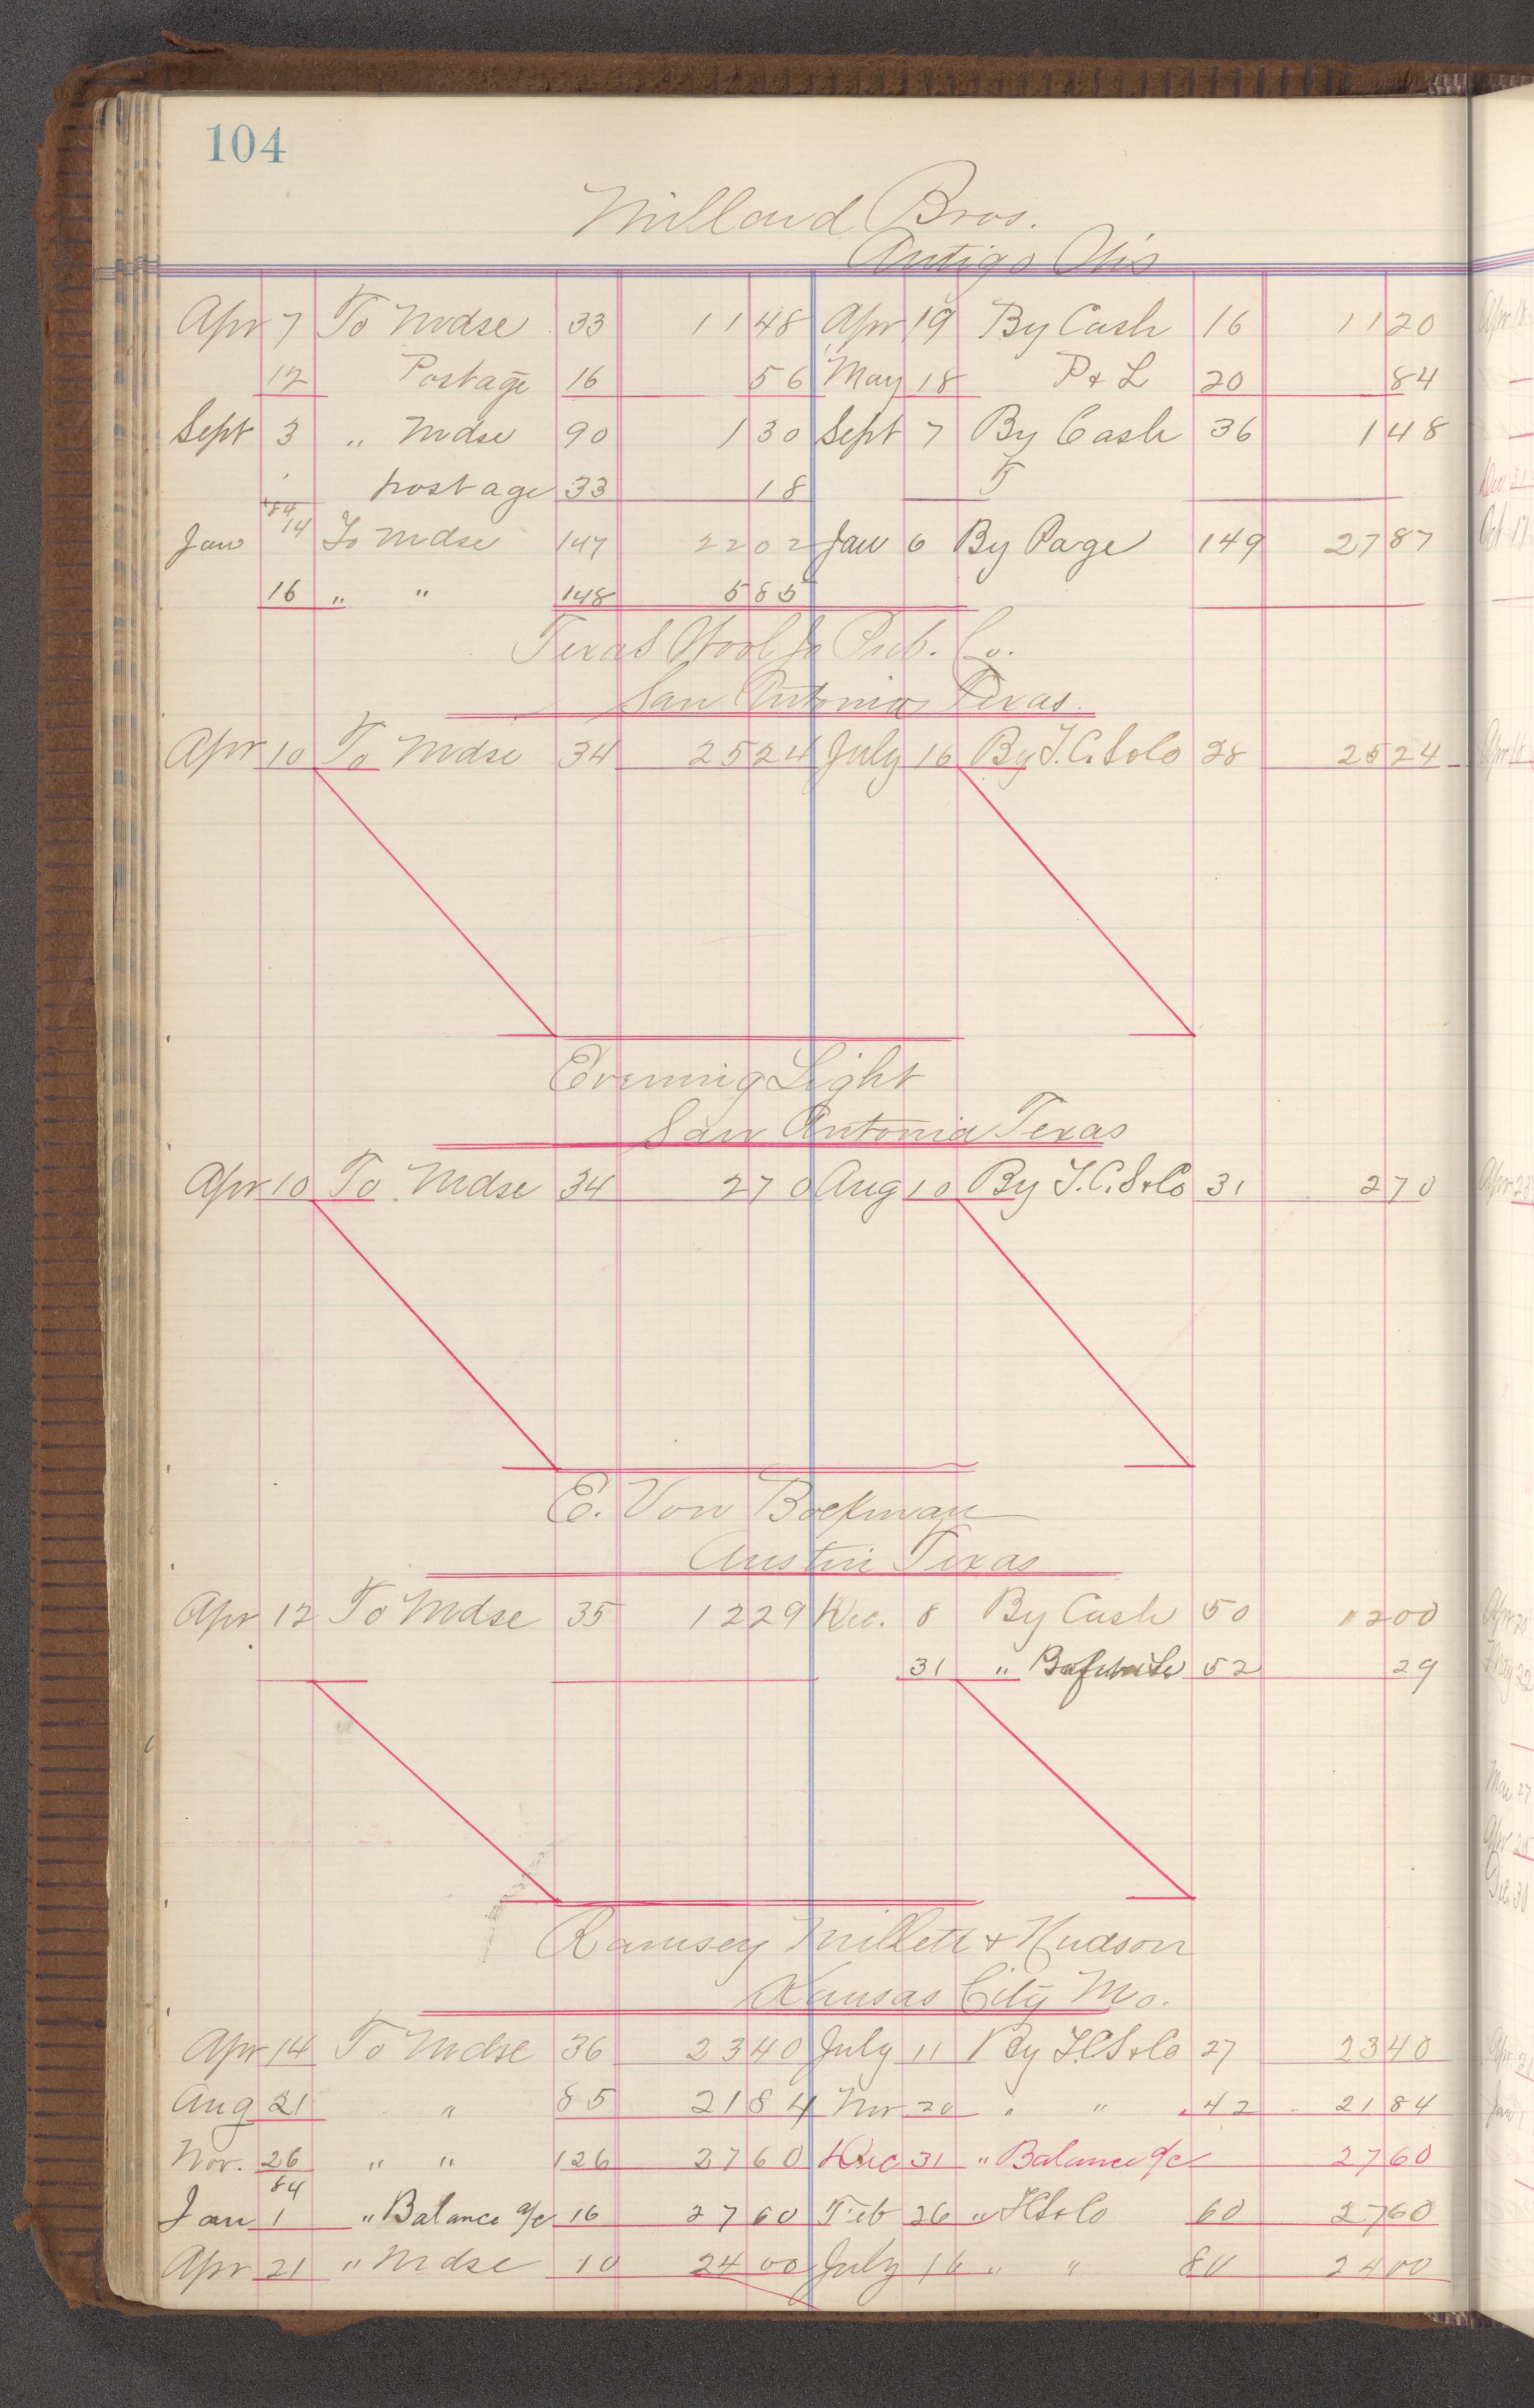 104
Millard Bros.
Antigo Wis
Apr 7 To Mdse 33 11 48 Apr 19 By Cash 16 11 20
12 Postage 16 56 May 18 P & L 20 84
Sept 3 " Mdse 90 1 30 Sept 7 By Cash 36 1 48
postage 33 18
84
Jan 14 To Mdse 147 22 02 Jan 6 By Page 149 27 87
16 " " 148 5 85
Texas Pub. Co.
San Antonio Texas.
Apr 10 To Mdse 34 25 24 July 16 By T.C.S&Co 28 25 24
Evening Light
San Antonia Texas
Apr 10 To Mdse 34 2 70 Aug 10 By T.C.S&Co 31 2 70
E. Von Boekman
Austin Texas
Apr 12 To Mdse 35 12 29 Dec. 8 By Cash 50 12 00
31 " 52 29
Ramsey Millett & Hudson
Kansas City Mo.
Apr 14 To Mdse 36 23 40 July 11 By T.C.S&Co 27 23 40
Aug 21 " 85 21 84 Nov 20 " " 42 21 84
Nov. 26 " " 126 27 60 Dec 31 " Balance a/c 27 60
84
Jan 1 " Balance a/c 16 27 60 Feb 26 " 60 27 60
Apr 21 " Mdse 10 24 00 July 16 " " 80 24 00